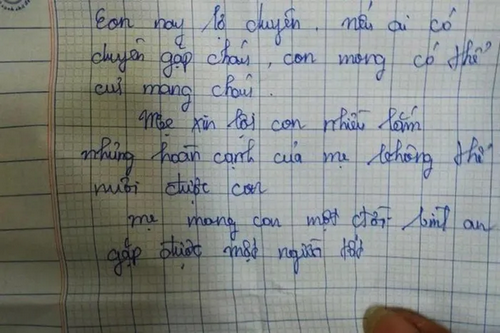 Con nay lỡ chuyến. nếu ai có
duyên gặp cháu, con mong có thể
cưu mang cháu.
Mẹ xin lỗi con nhiều lắm
nhưng hoàn cảnh của mẹ không thể
nuôi được con
mẹ mong con một đời bình an
gặp được một người tốt